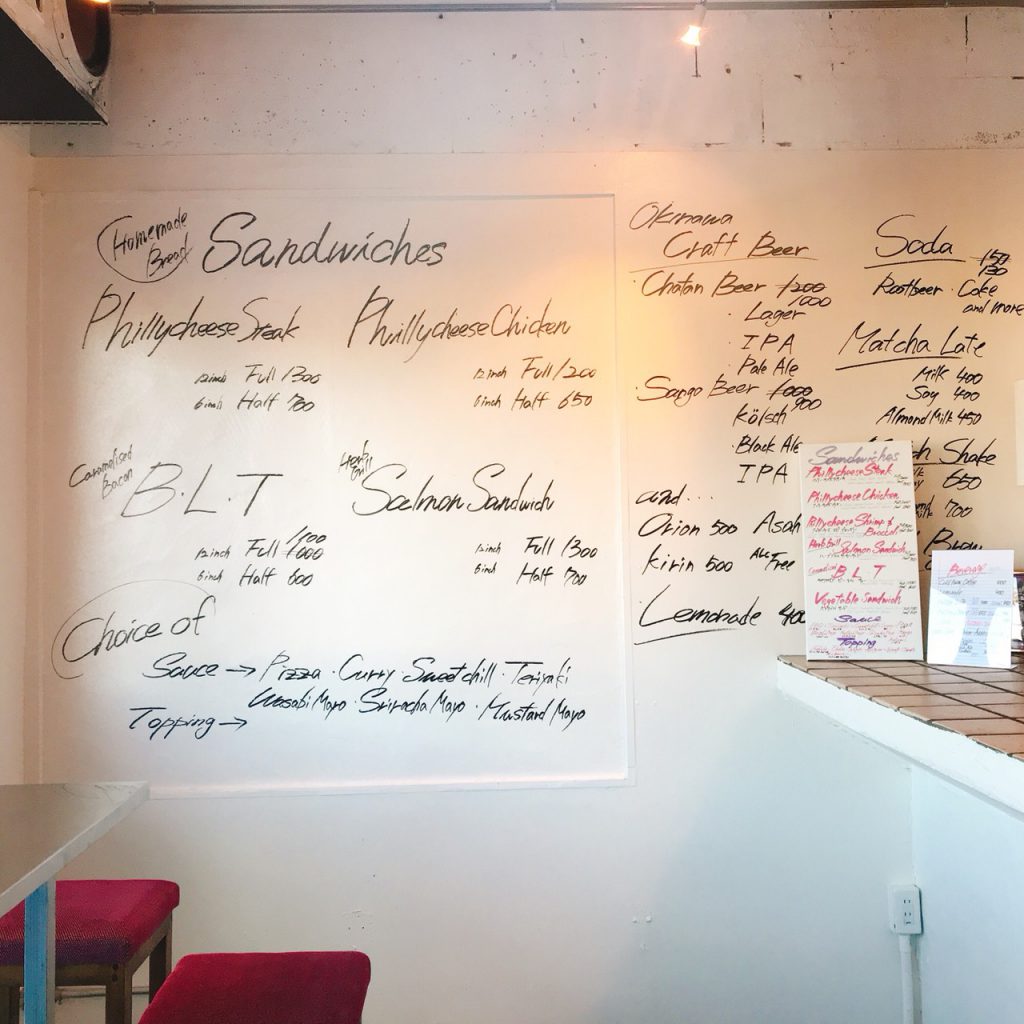 Homemade
Bread
Sandwiches
Phillycheese Steak
12inch Full 1300
6inch Half 700
Phillycheese Chicken
12inch Full 1200
6inch Half 650
Caramelised
Bacon
B.L.T
1100
12inch Full 1000
6inch Half 600
Herb
Grill
Salmon Sandwich
12inch Full 1300
6inch Half 700
Choice of
Sauce → Pizza · Curry · Sweetchili · Teriyaki
Wasabi Mayo · Sriracha Mayo · Mustard Mayo
Topping →
Okinawa
Craft Beer
· Chatan Beer 1200
1000
· Lager
· IPA
· Pale Ale
· Sango Beer 1000
900
Kölsch
· Black Ale
IPA
and...
Orion 500 Asah
Kirin 500 Alc Free
Lemonade 400
Soda 150
130
Rootbeer · Coke
and more
Matcha Late
Milk 400
Soy 400
Almond Milk 450
Shake
650
700
Brow
Sandwiches
Phillycheese Steak
Phillycheese Chicken
Phillycheese Shrimp &
Broccoli
Herb Grill Salmon Sandwich
B L T
Vegetable Sandwich
Sauce
Topping